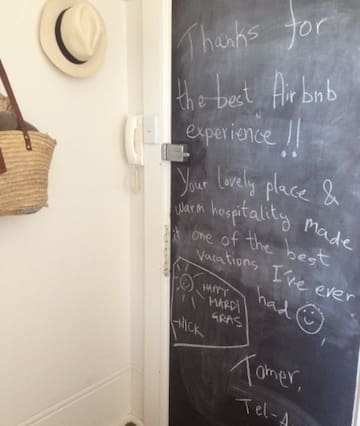 Thanks for
the best Airbnb
experience!!
Your lovely place &
warm hospitality made
it one of the best
vacations I've ever
had
HAPPY
MARDI
GRAS
-NICK
Tomer,
Tel-A